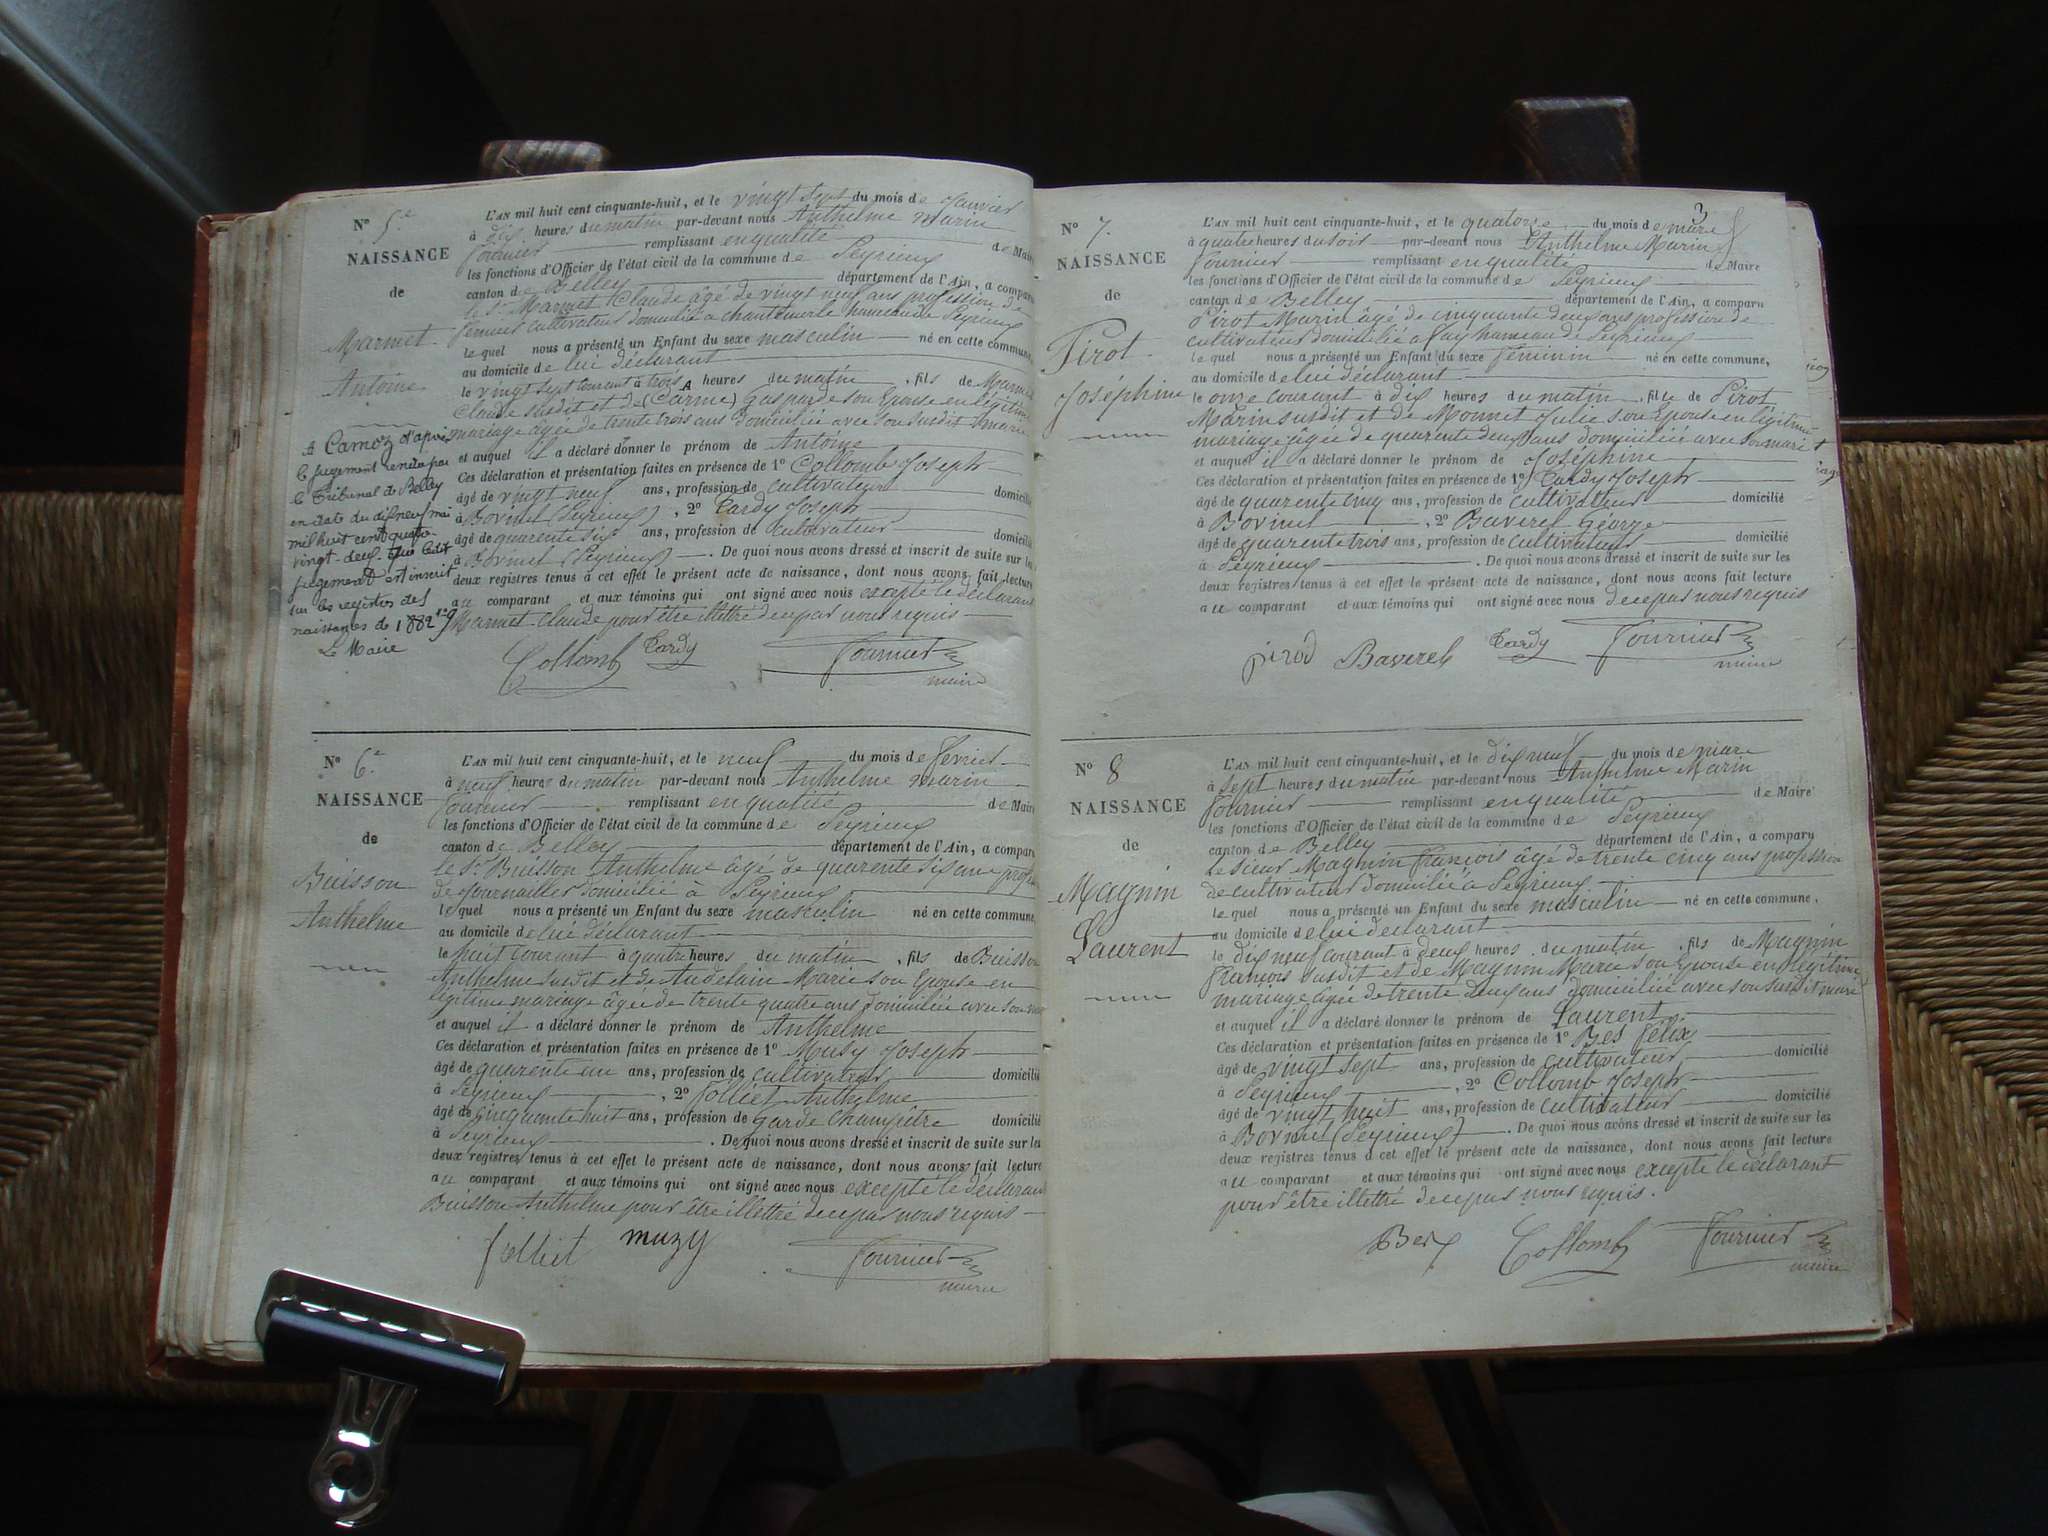 N° 5.e
NAISSANCE
de
Marmet
Antoine
L'AN mil huit cent cinquante-huit, et le vingt sept du mois de Janvier
à dix heures du matin par-devant nous Anthelme marin
Fournier remplissant en qualité de Maire
les fonctions d'Officier de l'état civil de la commune de Peyrieux
canton de Belley département de l'Ain, a comparu
le Sr. Marmet Claude âgé de vingt neuf ans profession de
cultivateur domicilié a chantemerle hameau de Peyrieux
le quel nous a présenté un Enfant du sexe masculin né en cette commune,
au domicile de lui déclarant
le vingt sept courant à trois heures du matin, fils de Marmet
Claude susdit et de (Carme) Gasparde son Epouse en légitime
mariage âgée de trente trois ans domiciliée avec son susdit mari
et auquel il a déclaré donner le prénom de Antoine
Ces déclaration et présentation faites en présence de 1° Collomb Joseph
âgé de vingt neuf ans, profession de cultivateur domicilié
à Bovinel (Peyrieux), 2° Tardy Joseph
âgé de quarente six ans, profession de Cultivateur domicilié
à Bovinel (Peyrieux). De quoi nous avons dressé et inscrit de suite sur les
deux registres tenus à cet effet le présent acte de naissance, dont nous avons fait lecture
au comparant et aux témoins qui ont signé avec nous excepté le déclarant
Marmet Claude pour être illettré de ce par nous requis
Collomb Tardy Fournier
maire
A Camoz d'après
le jugement rendu par
le Tribunal de Belley
en date du dix neuf mai
mil huit cent quatre
vingt-deux. Que ledit
jugement est inscrit
sur les registres des
naissances de 1882
Le Maire
N° 6.e
NAISSANCE
de
Buisson
Anthelme
L'AN mil huit cent cinquante-huit, et le neuf du mois de fevrier
à neuf heures du matin par-devant nous Anthelme marin
Fournier remplissant en qualité de Maire
les fonctions d'Officier de l'état civil de la commune de Peyrieux
canton de Belley département de l'Ain, a comparu
le Sr. Buisson Anthelme âgé de quarente six ans
de Journailler domicilié à Peyrieux
le quel nous a présenté un Enfant du sexe masculin né en cette commune,
au domicile de lui déclarant
le huit courant à quatre heures du matin, fils de Buisson
Anthelme susdit et de Andelain Marie son Epouse en
légitime mariage âgée de trente quatre ans domiciliée avec son
et auquel il a déclaré donner le prénom de Anthelme
Ces déclaration et présentation faites en présence de 1° Musy Joseph
âgé de quarente un ans, profession de cultivateur domicilié
à Peyrieux, 2° Folliet Anthelme
âgé de cinquante huit ans, profession de garde Champêtre domicilié
à Peyrieux. De quoi nous avons dressé et inscrit de suite sur les
deux registres tenus à cet effet le présent acte de naissance, dont nous avons fait lecture
au comparant et aux témoins qui ont signé avec nous excepté le déclarant
Buisson Anthelme pour être illettré de ce par nous requis
folliet muzy Fournier
maire
3
N° 7.
NAISSANCE
de
Pirot
Joséphine
L'AN mil huit cent cinquante-huit, et le quatorze du mois de mars
à quatre heures du soir par-devant nous Anthelme Marin
Fournier remplissant en qualité de Maire
les fonctions d'Officier de l'état civil de la commune de Peyrieux
canton de Belley département de l'Ain, a comparu
Pirot Marin âgé de cinquante deux ans profession de
cultivateur domicilié a fay hameau de Peyrieux
le quel nous a présenté un Enfant du sexe féminin né en cette commune,
au domicile de lui déclarant
le onze courant à dix heures du matin, fille de Pirot
Marin susdit et de Monnet Julie son Epouse en légitime
mariage âgée de quarente deux ans domiciliée avec son mari
et auquel il a déclaré donner le prénom de Joséphine
Ces déclaration et présentation faites en présence de 1° Tardy Joseph
âgé de quarente cinq ans, profession de cultivateur domicilié
à Bovinel, 2° Baverel George
âgé de quarente trois ans, profession de cultivateur domicilié
à Peyrieux. De quoi nous avons dressé et inscrit de suite sur les
deux registres tenus à cet effet le présent acte de naissance, dont nous avons fait lecture
au comparant et aux témoins qui ont signé avec nous de ce par nous requis
pirod Baverel Tardy Fournier
maire
N° 8
NAISSANCE
de
Magnin
Laurent
L'AN mil huit cent cinquante-huit, et le dix neuf du mois de mars
à sept heures du matin par-devant nous Anthelme Marin
Fournier remplissant en qualité de Maire
les fonctions d'Officier de l'état civil de la commune de Peyrieux
canton de Belley département de l'Ain, a comparu
le sieur Magnin françois âgé de trente cinq ans profession
de cultivateur domicilié a Peyrieux
le quel nous a présenté un Enfant du sexe masculin né en cette commune,
au domicile de lui déclarant
le dix neuf courant à deux heures du matin, fils de Magnin
françois susdit et de Magnin Marie son Epouse en légitime
mariage âgée de trente deux ans domiciliée avec son susdit mari
et auquel il a déclaré donner le prénom de Laurent
Ces déclaration et présentation faites en présence de 1° Bes félix
âgé de vingt sept ans, profession de cultivateur domicilié
à Peyrieux, 2° Collomb Joseph
âgé de vingt huit ans, profession de cultivateur domicilié
à Bovinel (Peyrieux). De quoi nous avons dressé et inscrit de suite sur les
deux registres tenus à cet effet le présent acte de naissance, dont nous avons fait lecture
au comparant et aux témoins qui ont signé avec nous excepté le déclarant
pour être illettré de ce par nous requis.
Collomb Fournier
maire